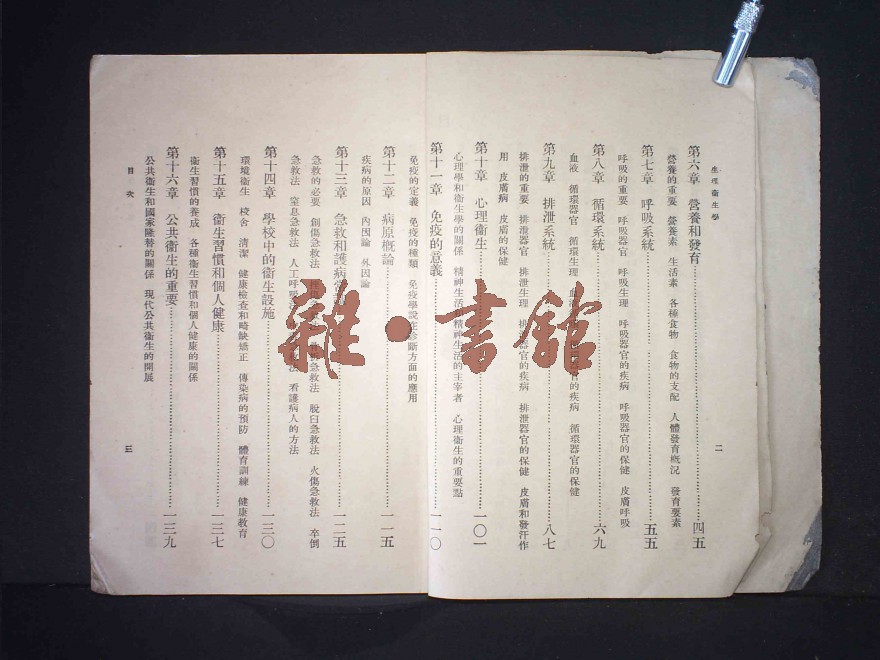 生理衞生學
二
第六章 營養和發育……四五
營養的重要 營養素 生活素 各種食物 食物的支配 人體發育槪況 發育要素
第七章 呼吸系統……五五
呼吸的重要 呼吸器官 呼吸生理 呼吸器官的疾病 呼吸器官的保健 皮膚呼吸
第八章 循環系統……六九
血液 循環器官 循環生理 官的疾病 循環器官的保健
第九章 排泄系統……八七
排泄的重要 排泄器官 排泄生理 排泄器官的疾病 排泄器官的保健 皮膚和發汗作
用 皮膚病 皮膚的保健
第十章 心理衞生……一〇一
心理學和衞生學的關係 精神生活 精神生活的主宰者 心理衞生的重要點
第十一章 免疫的意義……一一〇
免疫的定義 免疫的種類 免疫學說在診斷方面的應用
第十二章 病原槪論……一一五
疾病的原因 內因論 外因論
第十三章 急救和護病……一二五
急救的必要 創傷急救法 急救法 脫臼急救法 火傷急救法 卒倒
急救法 窒息急救法 人工呼吸法 看護病人的方法
第十四章 學校中的衞生設施……一三〇
環境衞生 校舍 淸潔 健康檢查和畸缺矯正 傳染病的預防 體育訓練 健康敎育
第十五章 衞生習慣和個人健康……一三七
衞生習慣的養成 各種衞生習慣和個人健康的關係
第十六章 公共衞生的重要……一三九
公共衞生和國家隆替的關係 現代公共衞生的開展
目次
三
雜·書館